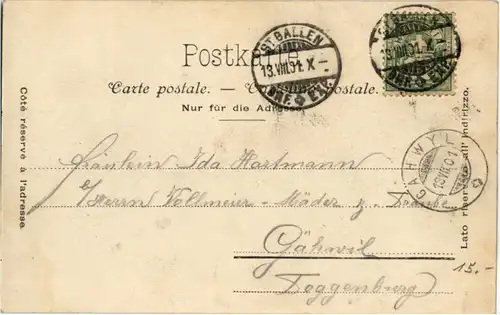 Postkarte
Carte postale. — Postale.
Nur für die Adresse
Côté réservé à l'adresse.
Lato riservato all' indirizzo.
ST. GALLEN
13.VIII.01. X –
BRF. EXP.
13.VIII.01. X –
BRF. EXP.
GÄHWYL
13.VIII.01
Fräulein Ida Hartmann
c/Herrn Vollmeier-Mäder z.
Gähwil
Toggenburg
15.-